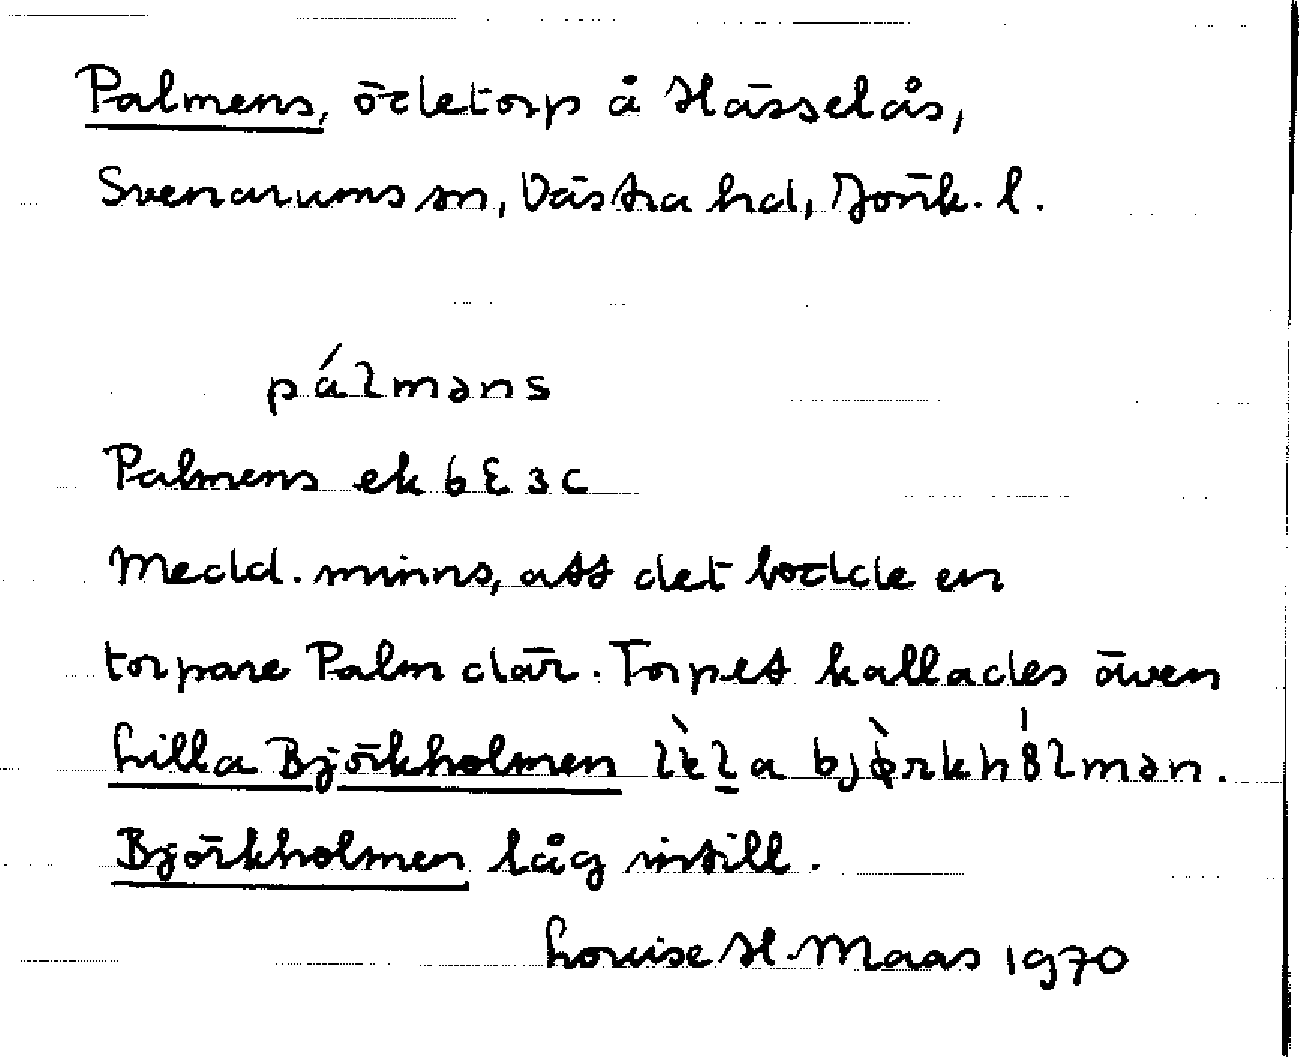 Palmens, ödetorp å Hässelås,
Svenarums sn, Västra hd, Jönk. l.
pálməns
Palmens ek 6E 3c
Medd. minns, att det bodde en
torpare Palm där. Torpet kallades även
Lilla Björkholmen
Björkholmen låg intill.
Louise H. Maas 1970